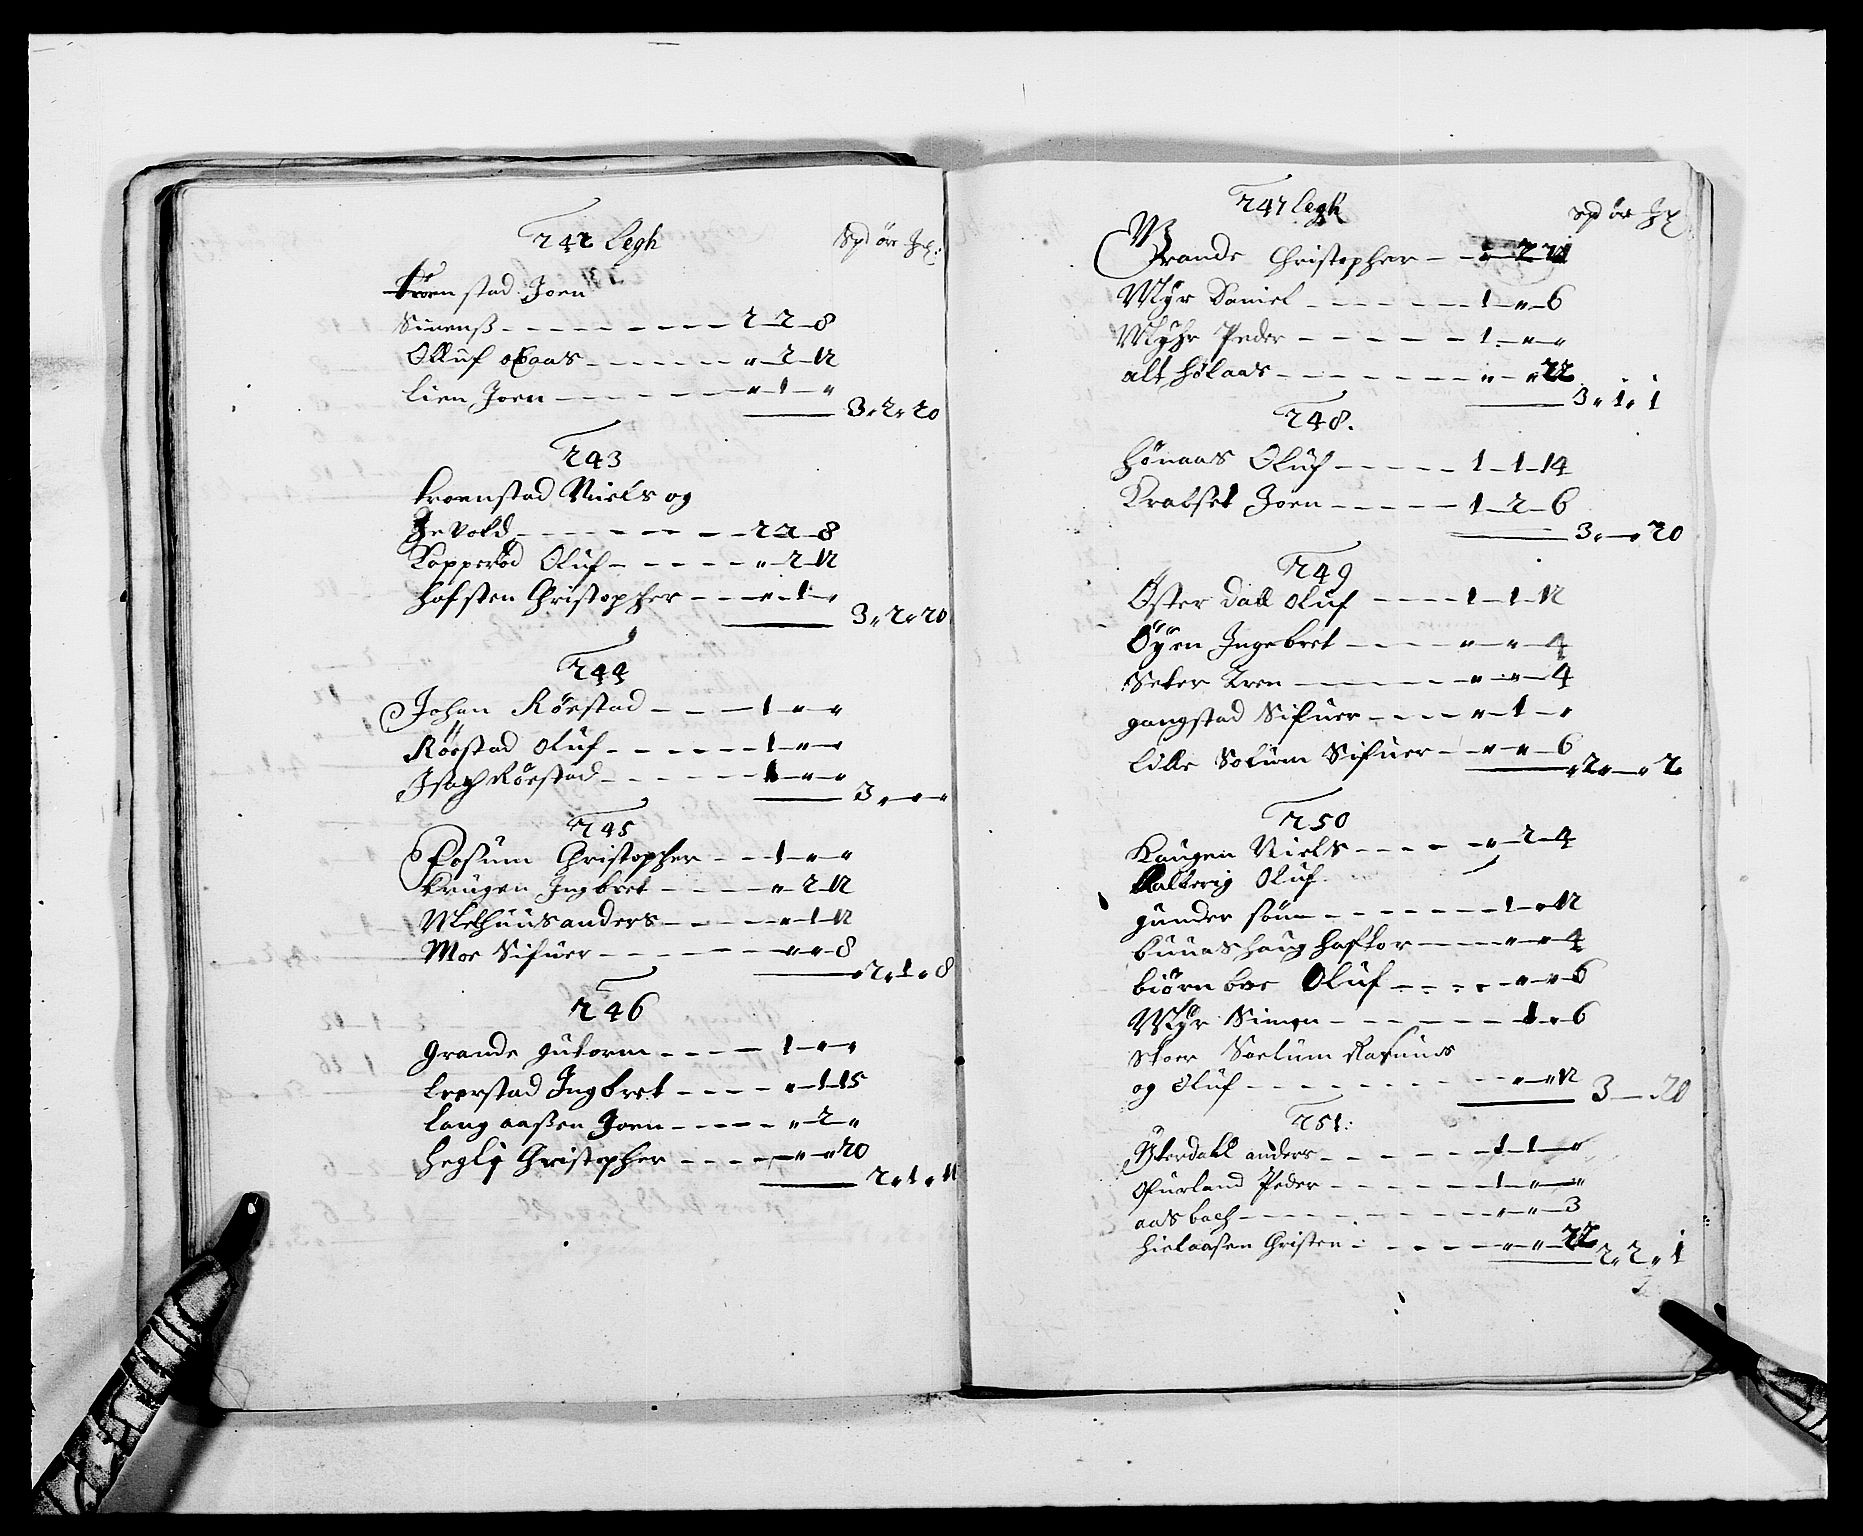 242 legh
Spd ör Jl:
Kroenstad Joen
Simenß - - - - 2 - 2 - 8
Olluf aaas - - - - „ - 2 - 12
Lien Joen - - - - „ - 1 - „
3 „ 2 „ 20
243
Kroenstad Niels og
Zevold - - - - 2 - 2 - 8
Kopperød Oluf - - - - „ - 2 - 12
Hofsten Christopher - - - „ - 1 - „
3 „ 2 „ 20
244
Johan Röestad - - - 1 - „ - „
Röestad Oluf - - - - 1 - „ - „
Isach Röestad - - - - 1 - „ - „
3 „ - „ - „
245
Fosum Christopher - - 1 - „ - „
Krugen Ingbret - - - - „ - 2 - 12
Melhuus anders - - - - „ - 1 - 12
Moe Sifuer - - - - „ - „ - 8
2 „ 1 „ 8
246
Grande gutorm - - - - 1 - „ - „
Leerstad Ingbret - - - „ - 1 - 15
Lang aaßen Joen - - - - „ - 2 - „
Hegli Christopher - - - - „ - „ - 20
2 „ 1 „ 11
247 legh
Spd ör Jl
Grande Christopher - - „ - 2 - 21
Myr Daniel - - - - 1 - „ - 6
Myhr Peder - - - - 1 - „ - „
alt hølaas - - - - „ - „ 22
3 „ 1 „ 1
248.
Hönaas Oluf - - - - 1 - 1 - 14
Krabset Joen - - - - 1 - 2 - 6
3 „ - „ 20
249
Öster dall Oluf - - - - 1 - 1 - 12
Öyen Ingebret - - - - „ - „ - 4
Seter Kren - - - - „ - „ - 4
gangstad Sifuer - - - - „ - 1 - „
Lille Solum Sifuer - „ - „ - 6
2 „ - „ 2
250
Haugen Niels - - - - „ - 2 - 4
Kalterig Oluf
gunder søm - - - - 1 - „ - 12
buuashaug haftor - - - „ - „ - 4
biörn boe Oluf - - - - „ - „ - 6
Myr Simen - - - - 1 - „ - 6
Stoer Soelum Rasmus
og Oluf - - - - „ - „ 12
3 - „ 20
251:
Ysterdall anders - - - - 1 - 1 - „
Ofurland Peder - - - - 1 - „ - „
aas bach - - - - „ - „ - 3
hielaasen Christen - - - - „ - „ - 22
2 „ 2 „ 1